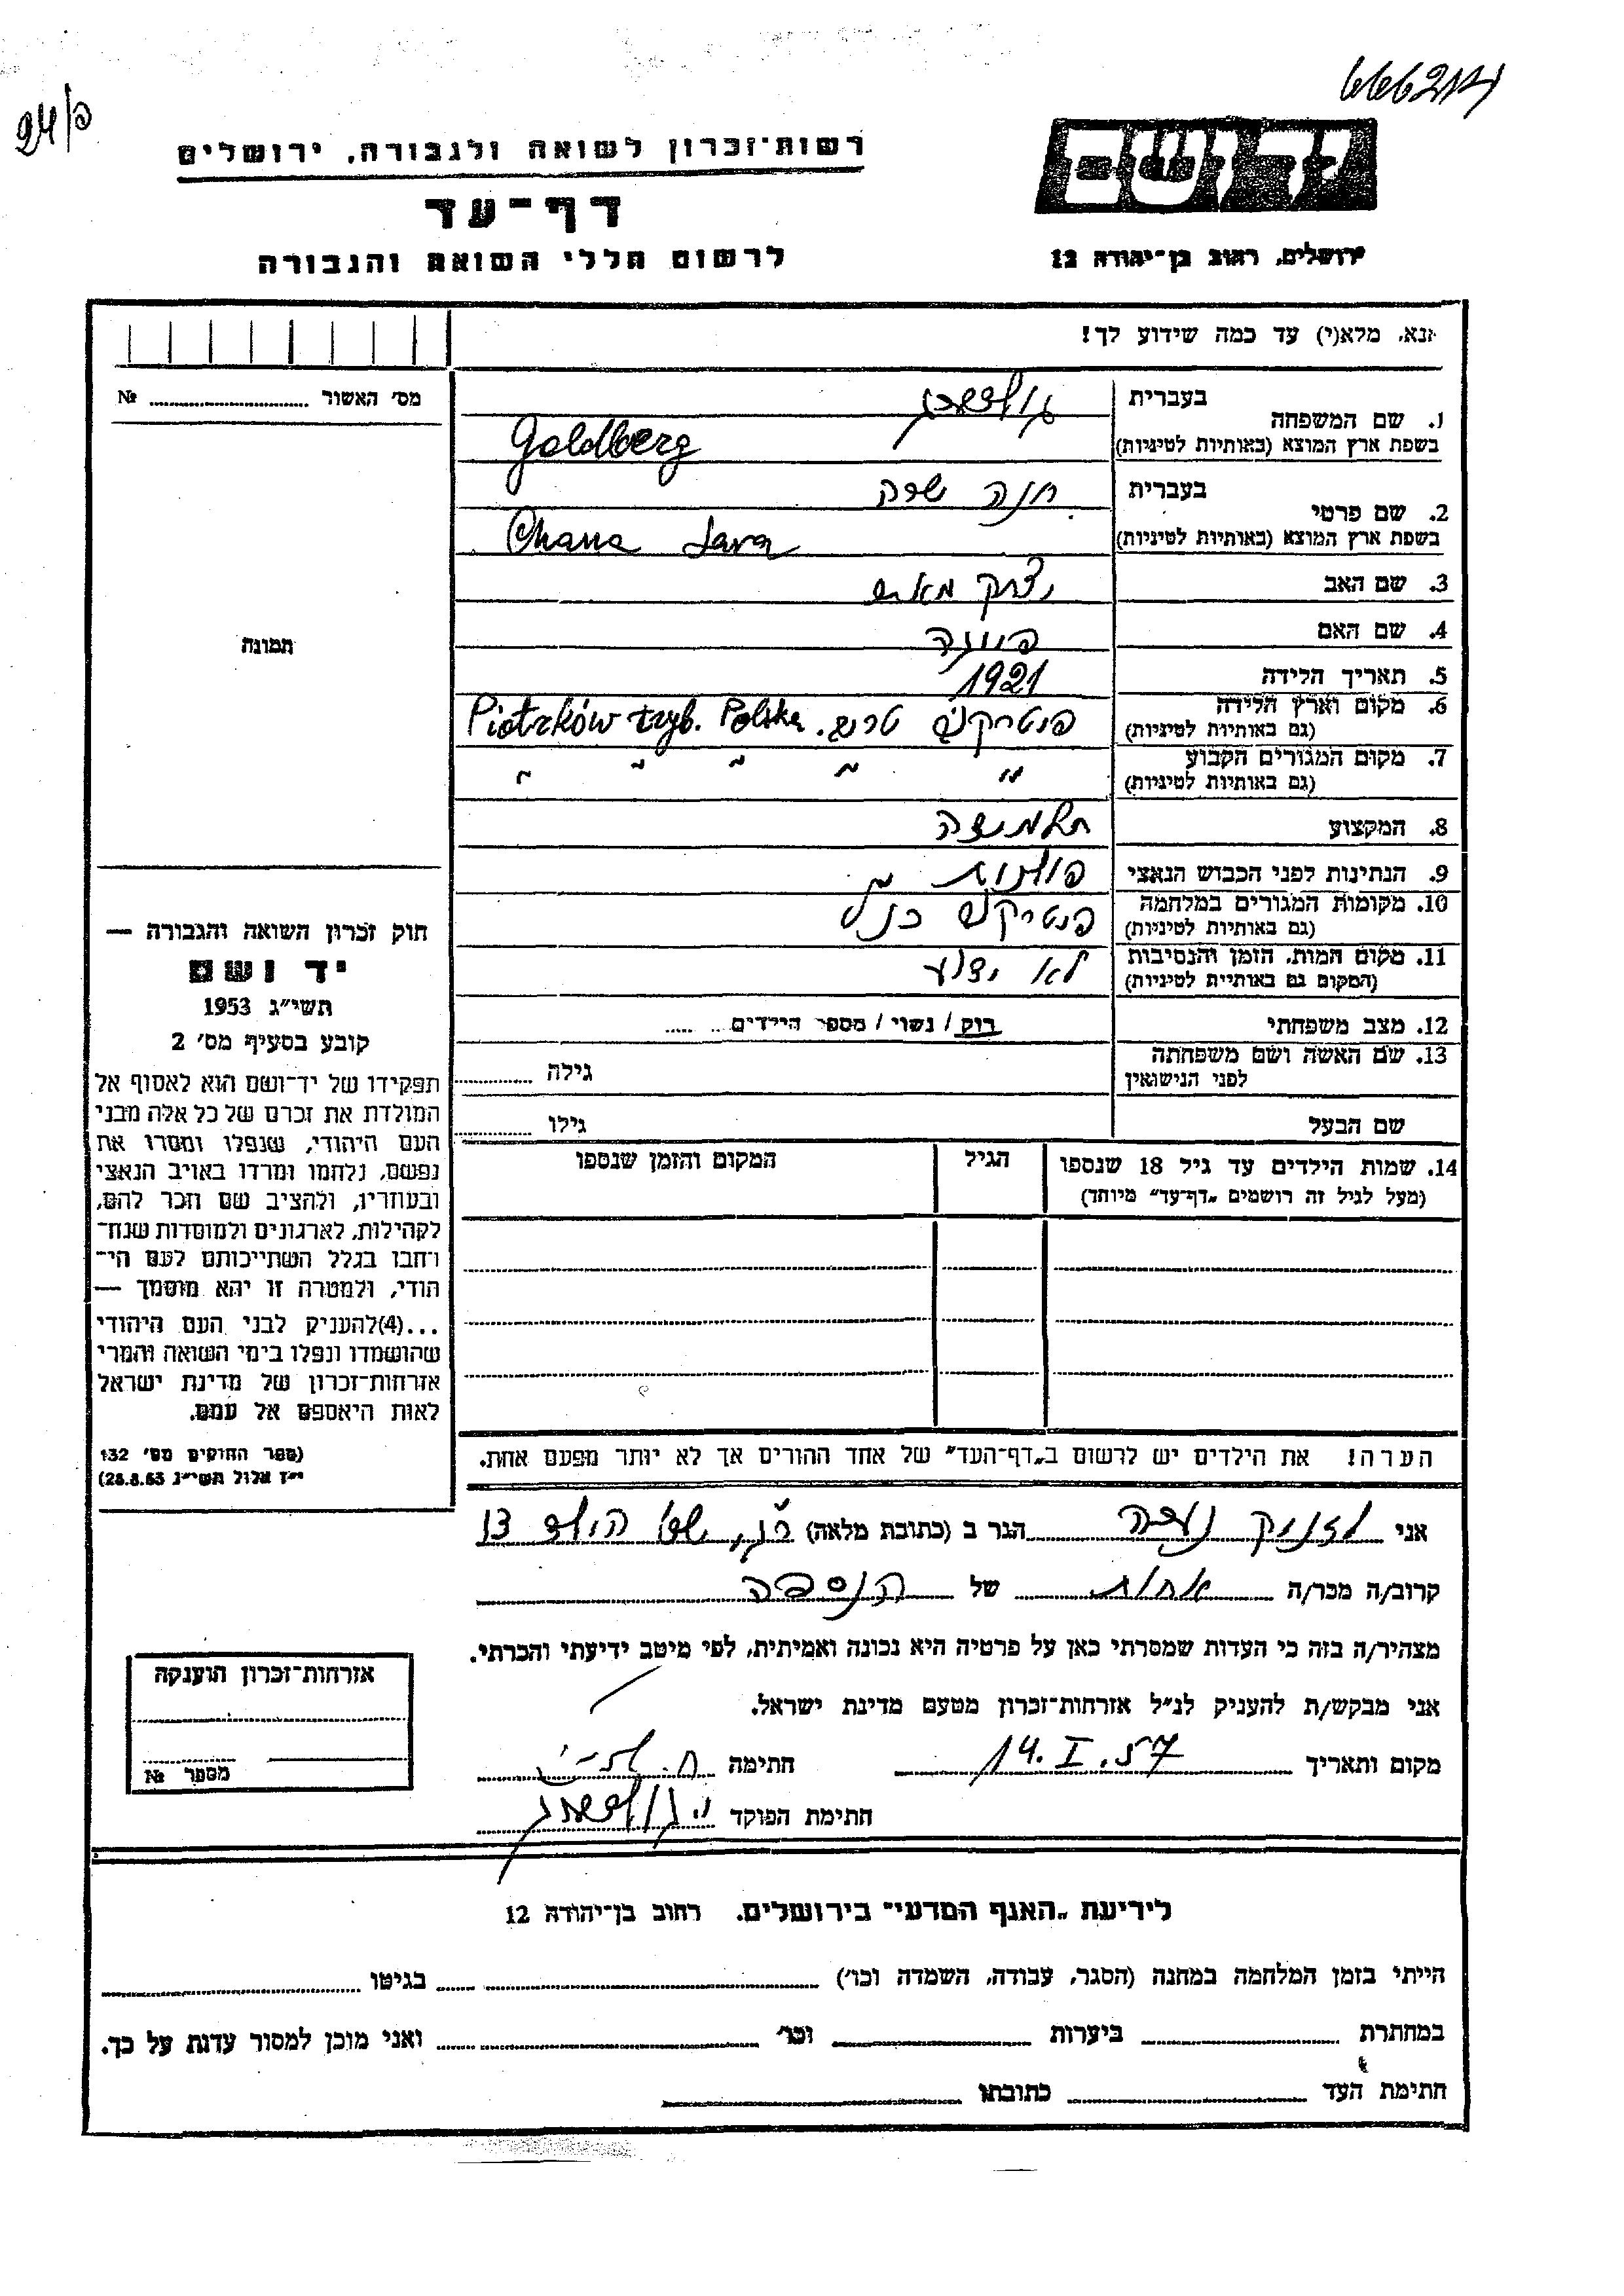 666214
94/פ
רשות־זכרון לשואה ולגבורה, ירושלים
דף־עד
לרשום חללי השואה והגבורה
יד ושם
ירושלים, רחוב בן־יהודה 12
אנא, מלא(י) עד כמה שידוע לך!
מס׳ האשור № 
1. שם המשפחה בעברית גולדברג
בשפת ארץ המוצא (באותיות לטיניות) Goldberg
2. שם פרטי בעברית חנה שרה
בשפת ארץ המוצא (באותיות לטיניות) Chana Sara
3. שם האב יצחק מאיר
4. שם האם
5. תאריך הלידה 1921
6. מקום וארץ הלידה פיוטרקוב טריב. Piotrków tryb. Polska
(גם באותיות לטיניות)
7. מקום המגורים הקבוע " " " " "
(גם באותיות לטיניות)
8. המקצוע תלמידה
9. הנתינות לפני הכבוש הנאצי פולנית
10. מקומות המגורים במלחמה פיוטרקוב כנ"ל
(גם באותיות לטיניות)
11. מקום המות, הזמן והנסיבות לא ידוע
(המקום גם באותיות לטיניות)
12. מצב משפחתי רוק / נשוי / מספר הילדים
13. שם האשה ושם משפחתה לפני הנישואין גילה
שם הבעל גילו
14. שמות הילדים עד גיל 18 שנספו הגיל המקום והזמן שנספו
(מעל לגיל זה רושמים „דף־עד” מיוחד)
תמונה
חוק זכרון השואה והגבורה —
יד ושם
תשי״ג 1953
קובע בסעיף מס׳ 2
תפקידו של יד־ושם הוא לאסוף אל
המולדת את זכרם של כל אלה מבני
העם היהודי, שנפלו ומסרו את
נפשם, נלחמו ומרדו באויב הנאצי
ובעוזריו, ולהציב שם וזכר להם,
לקהילות, לארגונים ולמוסדות שנח־
רבו בגלל השתייכותם לעם הי־
הודי, ולמטרה זו יהא מוסמך —
...(4)להעניק לבני העם היהודי
שהושמדו ונפלו בימי השואה והמרי
אזרחות־זכרון של מדינת ישראל
לאות היאספם אל עמם.
(ספר החוקים מס׳ 132
י״ז אלול תשי״ג 28.8.53)
הערה! את הילדים יש לרשום ב„דף־העד” של אחד ההורים אך לא יותר מפעם אחת.
אני הגר ב (כתובת מלאה)
קרוב/ה מכר/ה אחות של הנספה
מצהיר/ה בזה כי העדות שמסרתי כאן על פרטיה היא נכונה ואמיתית, לפי מיטב ידיעתי והכרתי.
אני מבקש/ת להעניק לנ״ל אזרחות־זכרון מטעם מדינת ישראל.
מקום ותאריך 14. I. 57 חתימה
חתימת הפוקד י. גולדברג
אזרחות־זכרון הוענקה
מספר №
לידיעת „האגף המדעי” בירושלים, רחוב בן־יהודה 12
הייתי בזמן המלחמה במחנה (הסגר, עבודה, השמדה וכו׳) בגיטו
במחתרת ביערות וכו׳ ואני מוכן למסור עדות על כך.
חתימת העד כתובתו